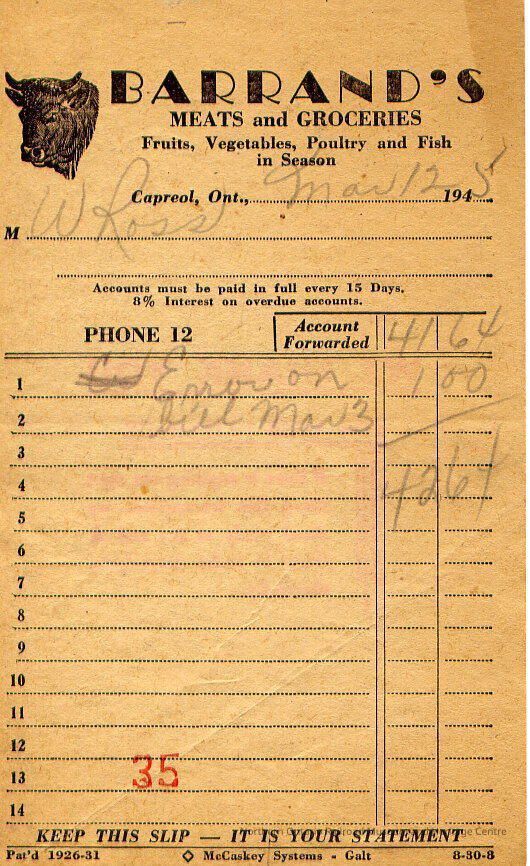 BARRAND'S
MEATS and GROCERIES
Fruits, Vegetables, Poultry and Fish
in Season
Capreol, Ont., Mar 12 1945
M W Ross
Accounts must be paid in full every 15 Days.
8% Interest on overdue accounts.
PHONE 12 Account Forwarded 41 64
1 Error on 1 00
2 Bill Mar 3
3
4 42 64
5
6
7
8
9
10
11
12
13 35
14
Northern Ontario Railroad Museum & Heritage Centre
KEEP THIS SLIP — IT IS YOUR STATEMENT
Pat'd 1926-31 ◇ McCaskey Systems - Galt 8-30-8